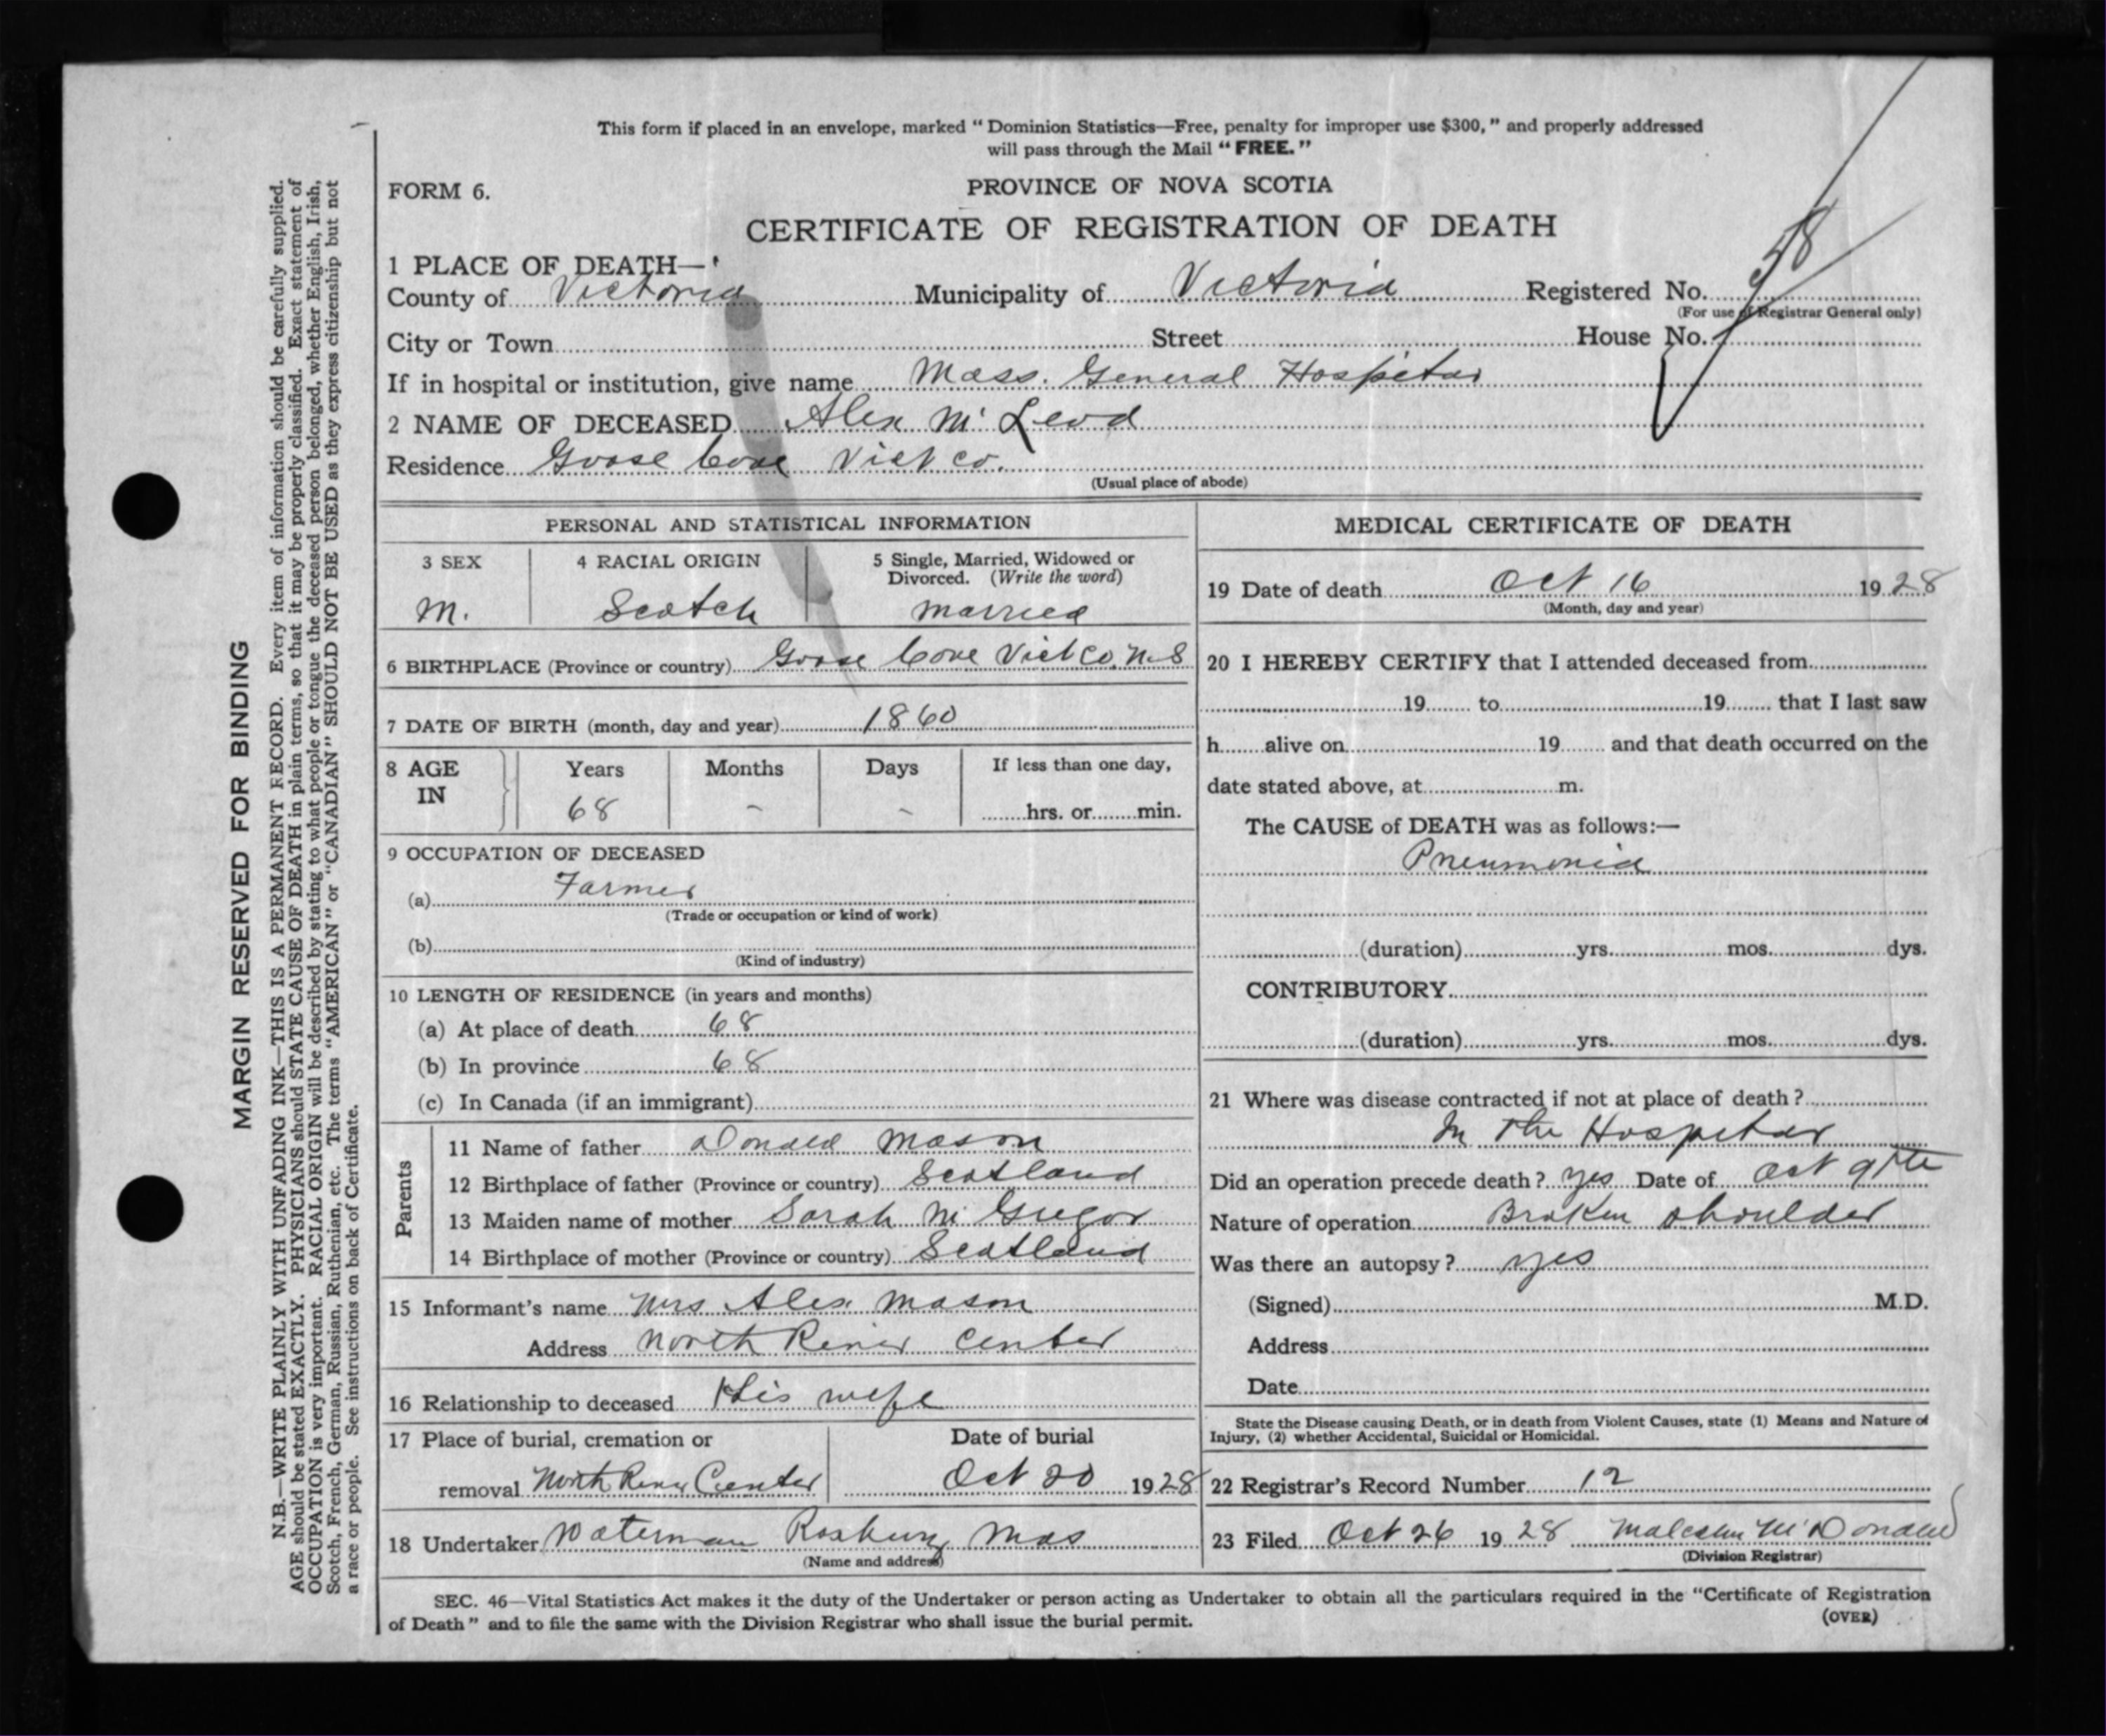 This form if placed in an envelope, marked “Dominion Statistics—Free, penalty for improper use $300,” and properly addressed
will pass through the Mail “FREE.”
FORM 6.
PROVINCE OF NOVA SCOTIA
CERTIFICATE OF REGISTRATION OF DEATH
1 PLACE OF DEATH—
County of Victoria Municipality of Victoria Registered No. 58
(For use of Registrar General only)
City or Town Street House No.
If in hospital or institution, give name Mass. General Hospital
2 NAME OF DECEASED Alex Mc Leod
Residence Goose Cove Vict co.
(Usual place of abode)
PERSONAL AND STATISTICAL INFORMATION
3 SEX 4 RACIAL ORIGIN 5 Single, Married, Widowed or
Divorced. (Write the word)
M. Scotch married
6 BIRTHPLACE (Province or country) Goose Cove Vict Co. N.S
7 DATE OF BIRTH (month, day and year) 1860
8 AGE IN Years Months Days If less than one day,
68 - - hrs. or min.
9 OCCUPATION OF DECEASED
(a) Farmer
(Trade or occupation or kind of work)
(b)
(Kind of industry)
10 LENGTH OF RESIDENCE (in years and months)
(a) At place of death 68
(b) In province 68
(c) In Canada (if an immigrant)
Parents
11 Name of father Donald Mason
12 Birthplace of father (Province or country) Scotland
13 Maiden name of mother Sarah Mc Gregor
14 Birthplace of mother (Province or country) Scotland
15 Informant's name Mrs Alex Mason
Address North River Center
16 Relationship to deceased His wife
17 Place of burial, cremation or Date of burial
removal North River Center Oct 20 1928
18 Undertaker Waterman Roxbury Mas
(Name and address)
MEDICAL CERTIFICATE OF DEATH
19 Date of death Oct 16 1928
(Month, day and year)
20 I HEREBY CERTIFY that I attended deceased from
19 to 19 that I last saw
h alive on 19 and that death occurred on the
date stated above, at m.
The CAUSE of DEATH was as follows:—
Pneumonia
(duration) yrs. mos. dys.
CONTRIBUTORY
(duration) yrs. mos. dys.
21 Where was disease contracted if not at place of death?
In the Hospital
Did an operation precede death? yes Date of Oct 9th
Nature of operation Broken shoulder
Was there an autopsy? yes
(Signed) M.D.
Address
Date
State the Disease causing Death, or in death from Violent Causes, state (1) Means and Nature of
Injury, (2) whether Accidental, Suicidal or Homicidal.
22 Registrar's Record Number 12
23 Filed Oct 26 1928 Malcolm McDonald
(Division Registrar)
SEC. 46—Vital Statistics Act makes it the duty of the Undertaker or person acting as Undertaker to obtain all the particulars required in the “Certificate of Registration
of Death” and to file the same with the Division Registrar who shall issue the burial permit.
(OVER)
MARGIN RESERVED FOR BINDING
N.B.—WRITE PLAINLY WITH UNFADING INK—THIS IS A PERMANENT RECORD. Every item of information should be carefully supplied.
AGE should be stated EXACTLY. PHYSICIANS should STATE CAUSE OF DEATH in plain terms, so that it may be properly classified. Exact statement of
OCCUPATION is very important. RACIAL ORIGIN will be described by stating to what people or tongue the deceased person belonged, whether English, Irish,
Scotch, French, German, Russian, Ruthenian, etc. The terms “AMERICAN” or “CANADIAN” SHOULD NOT BE USED as they express citizenship but not
a race or people. See instructions on back of Certificate.